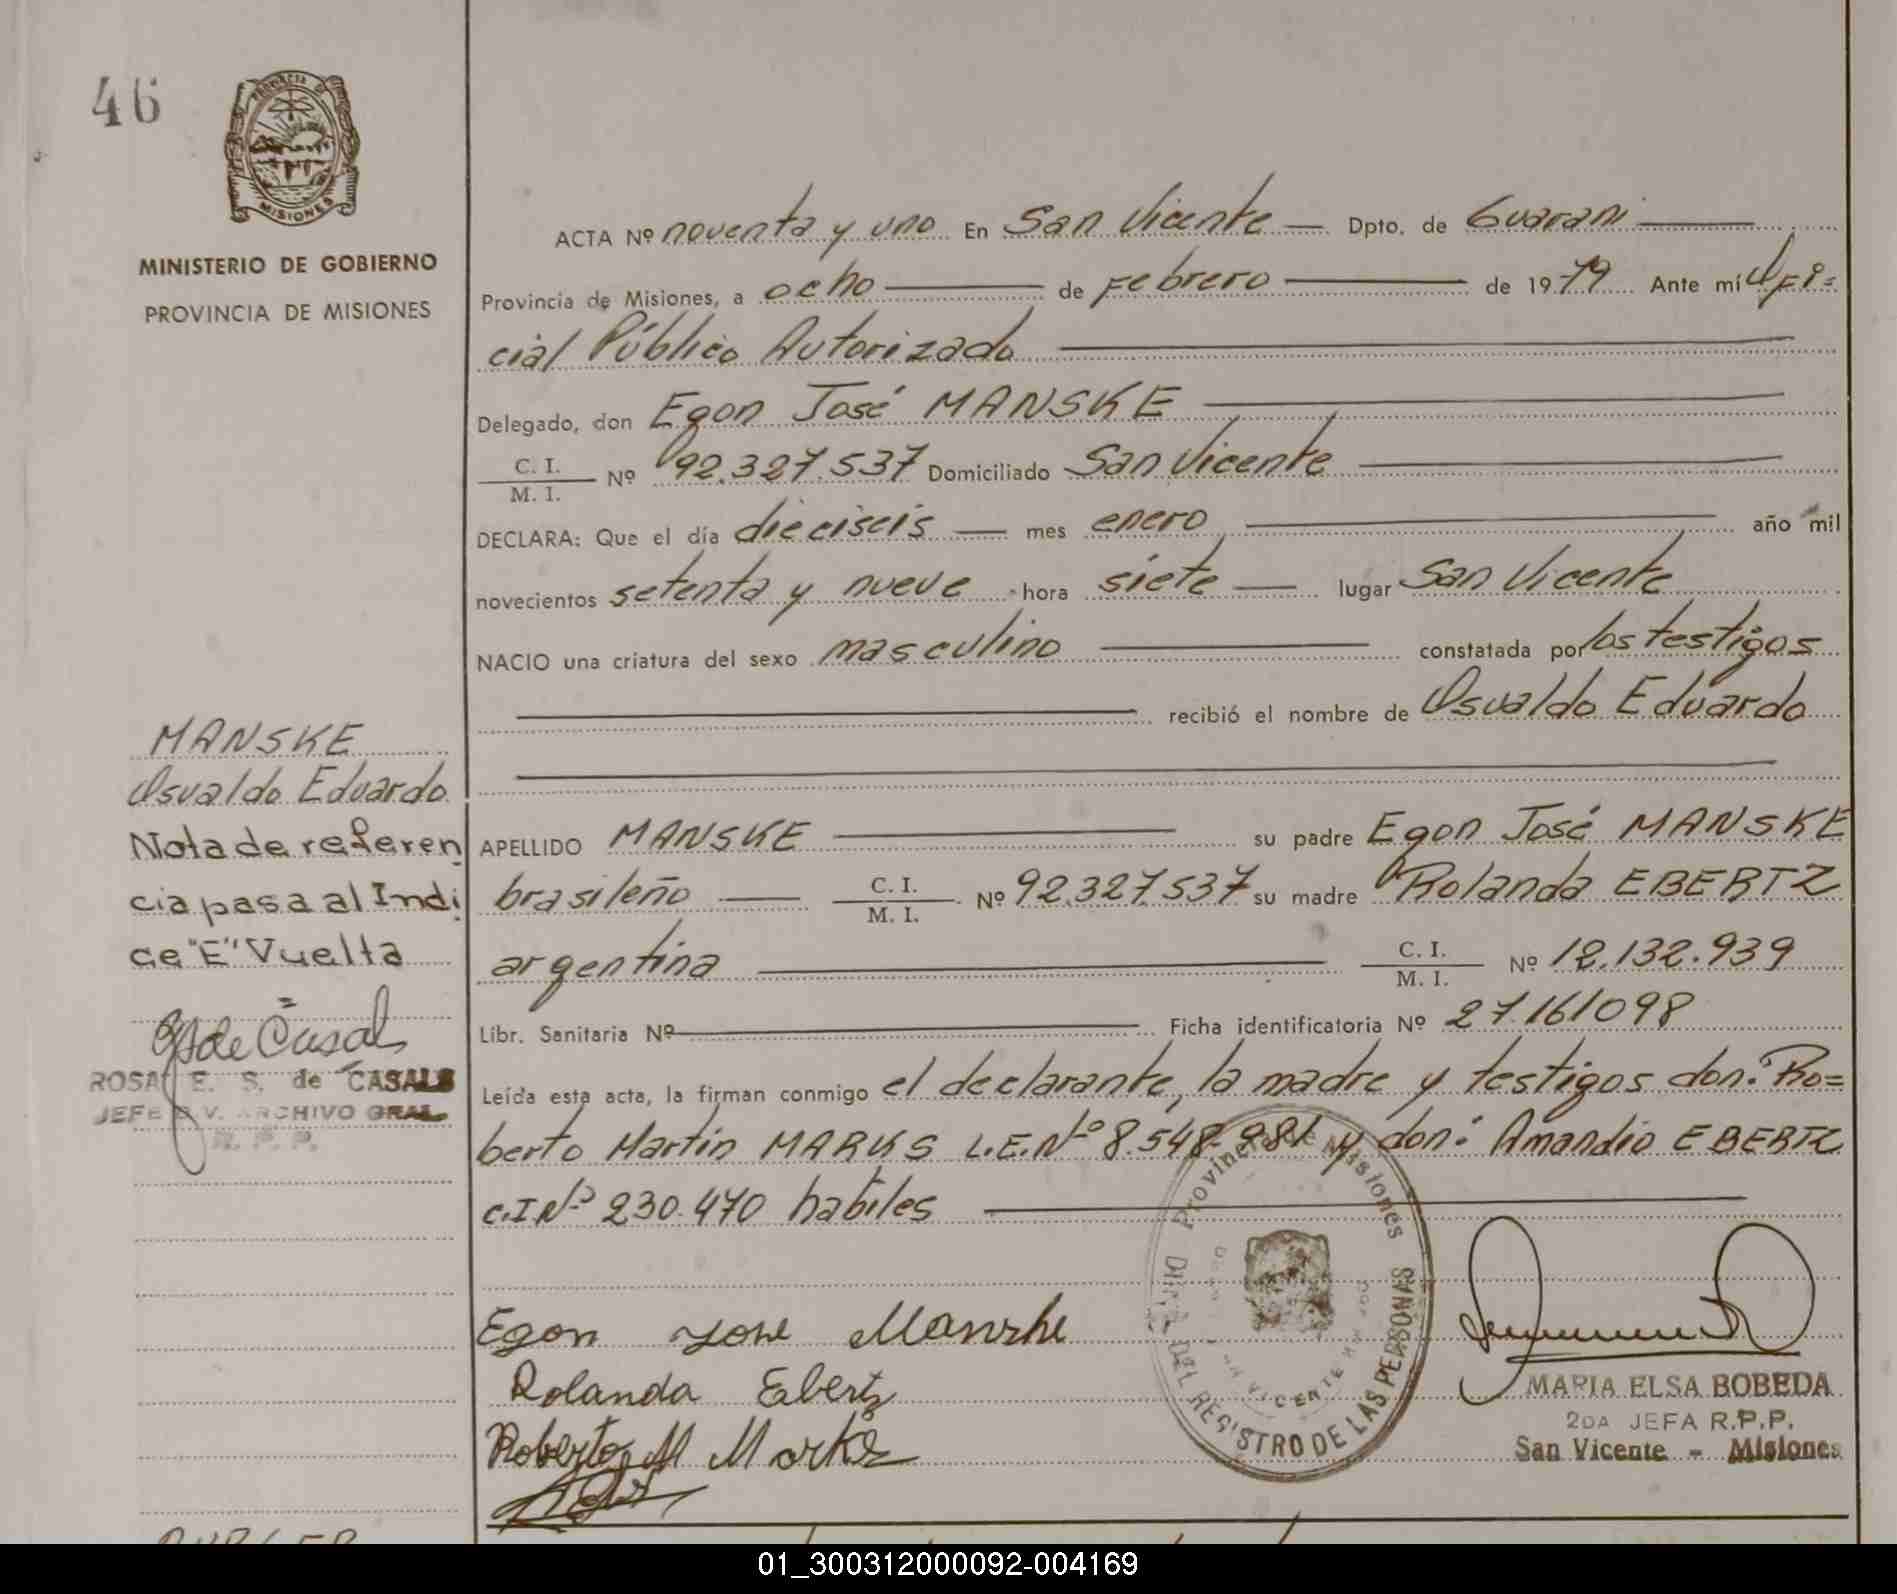 46
PROVINCIA D
MISIONES
MINISTERIO DE GOBIERNO
PROVINCIA DE MISIONES
MANSKE
Osvaldo Eduardo
Nota de referen
cia pasa al Indi
ce "E" Vuelta
G S de Casals
ROSA E. S. de CASALS
JEFE DV. ARCHIVO GRAL
R. P. P.
ACTA Nº noventa y uno En San Vicente — Dpto. de Guarani
Provincia de Misiones, a ocho de Febrero de 1979 Ante mí Ofi=
cial Público Autorizado
Delegado, don Egon José MANSKE
C. I. / M. I. Nº 92.327.537 Domiciliado San Vicente
DECLARA: Que el día dieciseis — mes enero año mil
novecientos setenta y nueve hora siete — lugar San Vicente
NACIO una criatura del sexo masculino constatada por los testigos
recibió el nombre de Osvaldo Eduardo
APELLIDO MANSKE su padre Egon José MANSKE
brasileño — C. I. / M. I. Nº 92.327.537 su madre Rolanda EBERTZ
argentina C. I. / M. I. Nº 12.132.939
Libr. Sanitaria Nº Ficha identificatoria Nº 27.161098
Leída esta acta, la firman conmigo el declarante, la madre y testigos don: Ro=
berto Martín MARKS L.E.Nº 8.548.981 y don: Amandio EBERTZ
C.I Nº 230.470 habiles
Provincia de Misiones
DEL REGISTRO DE LAS PERSONAS
VICENTE
Egon Jose Manske
Rolanda Ebertz
Roberto M Marks
MARIA ELSA BOBEDA
2DA JEFA R.P.P.
San Vicente - Misiones
01_300312000092-004169